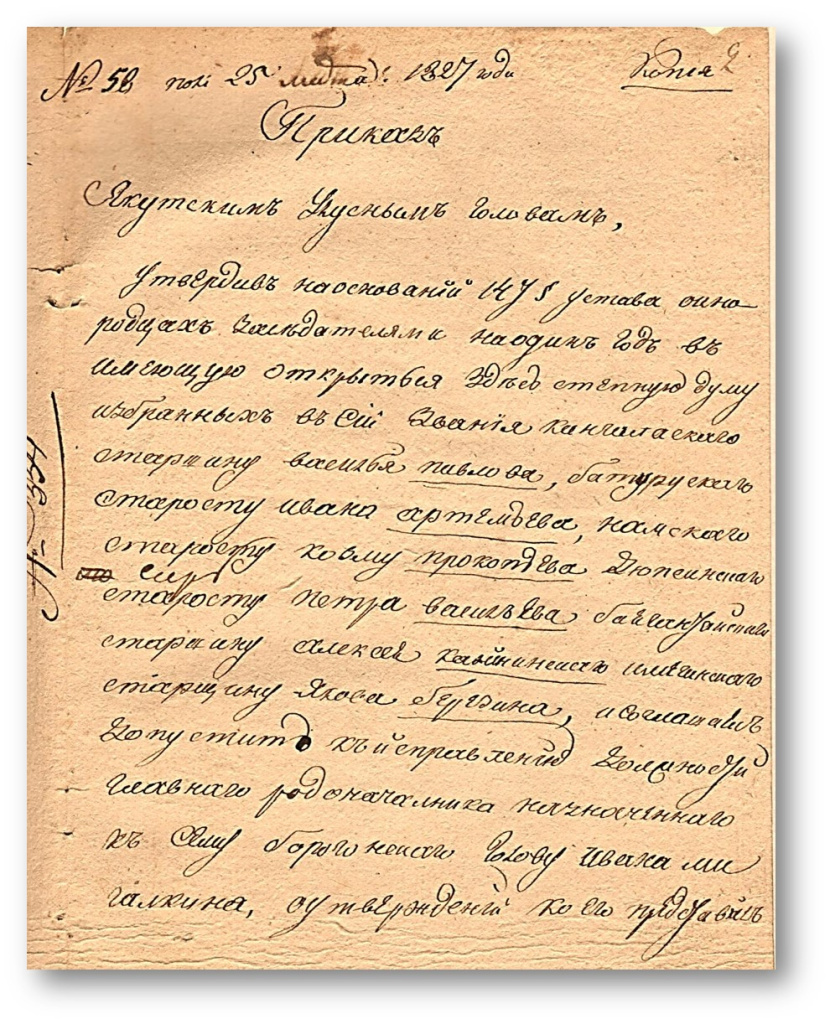 № 58 пол: 25 марта 1827 года Копія 2
Приказъ
Якутскимъ Улуснымъ Головамъ,
Утвердивъ наоснованій 147 § устава оино-
родцахъ Засѣдателями наодинъ годъ въ
имеющую открыться здѣсь степную думу
избранныхъ въ сій Званія кангаласкаго
старшину васильѣя павлова, батурускаго
старосту ивана артемьева, намскаго
старосту козму прокопьева Дюпсинскаго
старосту петра василъева баягантайскаго
старшину алексѣя
имегинскаго
старщину Якова березина, исогласилъ
Допустить къ исправленію Должности
главнаго родоначалника назначеннаго
къ Сему борогонскаго Голову Ивана ми
галкина, оутвержденій коего представилъ